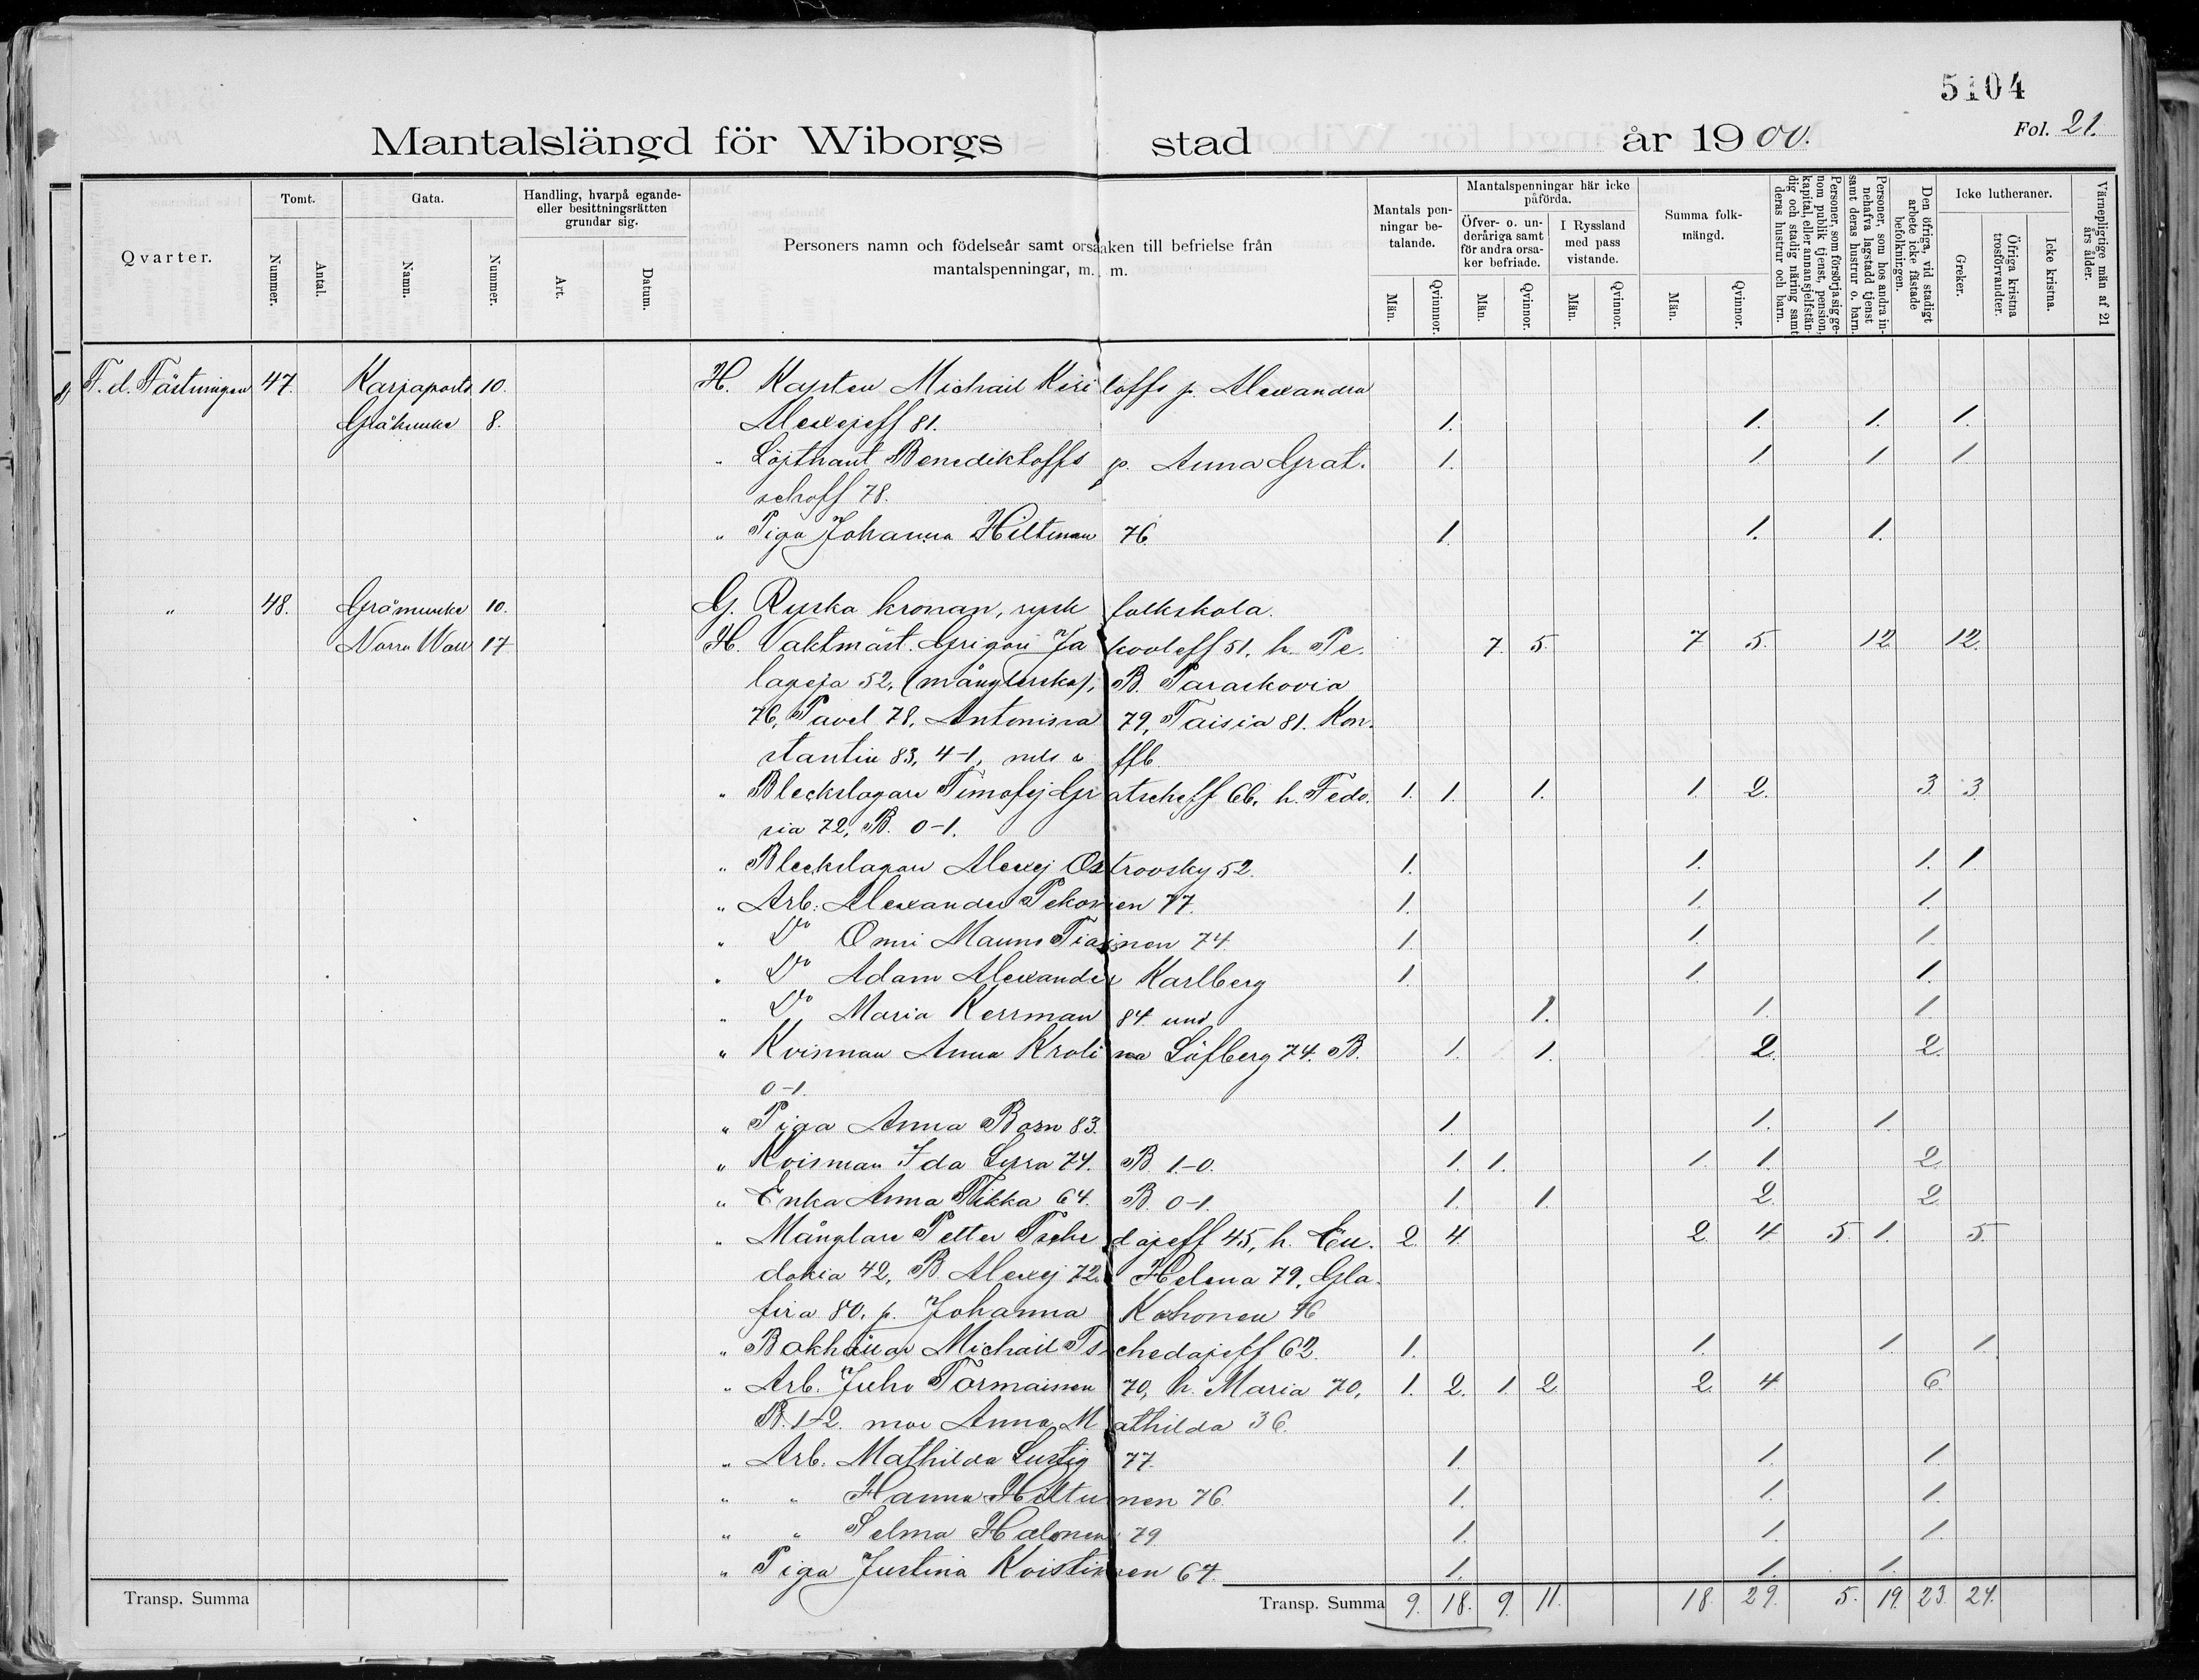 5104
Mantalslängd för Wiborgs stad år 1900.
Fol. 21.
Qvarter.
Tomt.
Nummer.
Antal.
Gata.
Namn.
Nummer.
Handling, hvarpå egande- eller besittningsrätten grundar sig.
Art.
Datum.
Personers namn och födelseår samt orsaken till befrielse från
mantalspenningar, m. m.
Mantals penningar betalande.
Män.
Qvinnor.
Mantalspenningar här icke påförda.
Öfver- o. underåriga samt för andra orsaker befriade.
Män.
Qvinnor.
I Ryssland med pass vistande.
Män.
Qvinnor.
Summa folkmängd.
Män.
Qvinnor.
Personer, som försörja sig genom publik tjenst, pension, kapital, eller annan sjelfständig och stadig näring samt deras hustrur och barn.
Personer, som hos andra innehafva lagstadd tjenst samt deras hustrur o. barn.
Den öfriga, vid stadigt arbete icke fästade befolkningen.
Icke lutheraner.
Greker.
Öfriga kristna trosförvandter.
Icke kristna.
Värnepligtige män af 21 års ålder.
F. d. Fästningen 47. Karjaports 10. H. Kapten Michail Kiriloffs p. Alexandra
Gråmunke 8. Alexejeff 81. 1. 1. 1. 1.
" Löjtnant Benediktoffs p. Anna Grat- 1. 1. 1. 1.
schoff 78.
" Piga Johanna Hiltunen 76. 1. 1. 1.
" 48. Gråmunke 10. G. Ryska kronan, rysk folkskola.
Norra Wall 17 H. Vaktmäst. Grigori Jakovleff 51, h. Pe- 7. 5. 7 5. 12. 12.
lageja 52, (månglerska), B. Paraskovia
76, Pavel 78, Antonina 79, Taisia 81. Kon-
stantin 83, 4-1, ffb.
" Bleckslagare Timofej Gratscheff 66, h. Fedo- 1. 1. 1. 1. 2. 3. 3.
sia 72, B. 0-1.
" Bleckslagare Alexej Ostrovsky 52. 1. 1. 1. 1.
" Arb. Alexander Pekonen 77. 1. 1. 1.
" Do Onni Mauno Tiainen 74. 1. 1. 1.
" Do Adam Alexander Karlberg 1. 1. 1.
" Do Maria Kerrman 84. und 1. 1. 1
" Kvinnan Anna Krolina Löfberg 74. B. 1. 1. 2. 2.
0-1.
" Piga Anna Born 83. 1. 1. 1.
" Kvinnan Ida Lyra 74. B. 1-0. 1. 1. 1. 1. 2.
" Enka Anna Tikka 64. B. 0-1. 1. 1. 2. 2.
" Månglare Petter Tschedajeff 45, h. Eu- 2. 4. 2. 4. 5. 1. 5.
dokia 42, B. Alexej 72. Helena 79, Gla-
fira 80. p. Johanna Kohonen 76
" Bokhållar Michail Tschedajeff 62. 1. 1. 1. 1.
" Arb. Juho Tormainen 70, h. Maria 70, 1. 2. 1. 2. 2. 4 6.
B. 1-2. mor Anna Mathilda 36.
" Arb. Mathilda Lustig 77. 1. 1. 1.
" " Hanna Hiltunen 76. 1. 1. 1.
" " Selma Halonen 79. 1. 1. 1.
" Piga Justina Koistinen 67. 1. 1. 1.
Transp. Summa
Transp. Summa 9. 18. 9. 11. 18. 29. 5. 19. 23. 24.